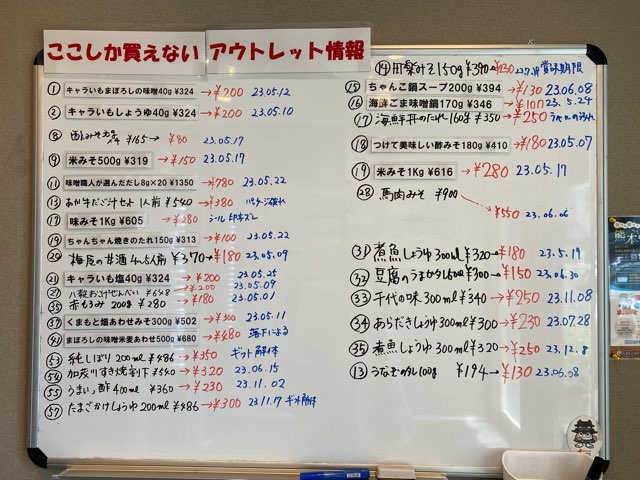 ここしか買えない アウトレット情報
① キャラいもまぼろしの味噌40g ¥324 →¥200 23.05.12
② キャライもしょうゆ40g ¥324 →¥200 23.05.10
⑧ 酢みそ ¥165→ ¥80 23.05.17
⑨ 米みそ500g ¥319 →¥150 23.05.17
⑪ 味噌職人が選んだだし8g×20 ¥1350 →¥780 23.05.22
⑬ あか牛だご汁セット 1人前 ¥540 →¥380 パッケージ破れ
⑰ 味みそ1Kg ¥605 →¥280 シール印字ズレ
⑲ ちゃんちゃん焼きのたれ150g ¥313 →¥100 23.05.22
梅屋の甘酒 4〜5人前 ¥370→¥180 23.05.09
㉑ キャラいも塩40g ¥324 →¥200 23.05.25
㉗ 八穀おこげせんべい →¥200 23.05.09
赤もろみ 200g ¥280 →¥180 23.05.01
㊲ くまもと畑あわせみそ300g ¥502 →¥300 23.05.11
まぼろしの味噌米麦あわせ500g ¥680 →¥480 落下による
53 純しぼり 200ml ¥486 →¥350 ギフト解体
54 加辰川すき焼割下 ¥540 →¥320 23.06.15
55 うまいっ酢 400ml ¥360 →¥230 23.11.02
57 たまごかけしょうゆ 200ml ¥486 →¥300 23.11.17 ギフト解体
⑭ 150g ¥390→¥230 賞味期限
⑮ ちゃんこ鍋スープ200g ¥394 →¥130 23.06.08
⑯ 海鮮ごま味噌鍋170g ¥346 →¥100 23.5.24
⑰ 海鮮丼のたれ 160g ¥350 →¥250
⑱ つけて美味しい酢みそ180g ¥410 →¥180 23.05.07
⑲ 米みそ1Kg ¥616 →¥280 23.05.17
㉘ 馬肉みそ ¥900 →¥550 23.06.06
㉛ 煮魚しょうゆ 300ml ¥320→¥180 23.5.19
㉜ 豆腐のうまかタレ150ml ¥300→¥150 23.06.30
㉝ 千代の味 300ml ¥340 →¥250 23.11.08
㉞ あらだきしょうゆ 300ml ¥300 →¥230 23.07.28
㉟ 煮魚しょうゆ 300ml ¥320 →¥250 23.12.8
⑬ うなぎのタレ 100g ¥194→¥130 23.06.08